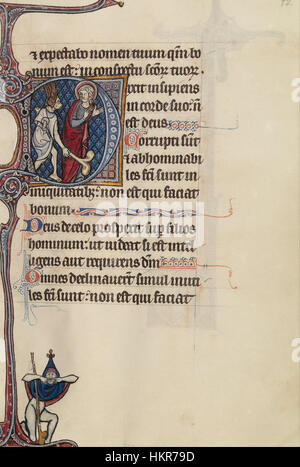 & expectabo nomen tuum qm̄ bo
num est: in conspectu scōꝝ tuoꝝ.
Dixit insipiens
in corde suo: n̄
est deus
Corrupti sūt
& abhominabi
les facti sunt in
iniquitatibꝫ: non est qui faciat
bonum.
Deus de celo prospexit suꝑ filios
hominum: ut uideat si est intel
ligens aut requirens dm̄
Omnes declinauerunt simul inuti
les fc̄i sunt: non est qui faciat
alamy
HKR79D